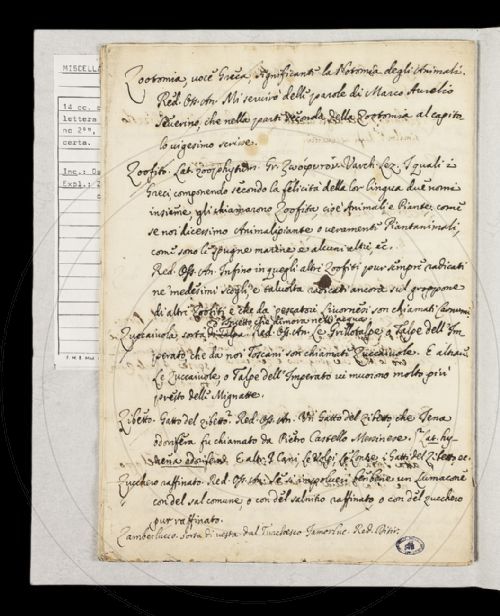 MISCELLA
Zootomia, voce Greca, significante la Notomia degli Animali.
Red. Oss. An. Mi servirò delle parole di Marco Aurelio
Severino, che nella parte seconda della Zootomia al capito
lo vigesimo scrisse.
Zoofito. Lat. zoophyton. Gr. Varch. Lez. I quali i
Greci componendo secondo la felicità della lor lingua due nomi
insieme, gli chiamarono Zoofita, cioè Animali e Piante, come
se noi dicessimo Animalipiante o veramente Piantanimali,
come sono le spugne marine e alcuni altri, ec.
Red. Oss. An. Infino in quegli altri Zoofiti pur sempre radicati
ne' medesimi scogli, e talvolta radicati ancora sul groppone
di altri Zoofiti e che da pescatori Livornesi son chiamati
Insetto che dimora nell'acqua
Zuccaiuola, sorta Red. Oss. An. Le Grillotalpe, o Talpe dell' Im
perato che da noi Toscani son chiamate Zuccaiuole. E altrove
Le Zuccaiuole, o Talpe dell' Imperato vi muoiono molto più
presto delle Mignatte.
Zibetto. Gatto del zibetto. Red. Oss. An. Un Gatto del Zibetto, che Iena
odorifera fu chiamato da Pietro Castello Messinese. Lat. hy-
aena odorifera. E altr. I Cani, le Volpi, le Lonze, i Gatti del Zibetto ec.
Zucchero raffinato. Red. Oss. An. Se s'impolveri benbene un Lumacone
con del sal comune o con del salnitro raffinato, o con del zucchero
pur raffinato.
Zamberlucco. Sorta di vesta dal Turchesco Red. Ditir.